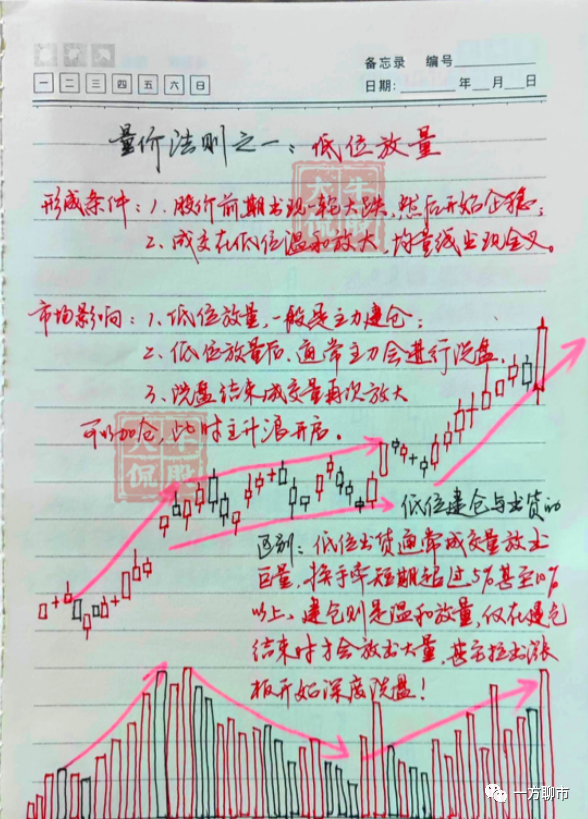 备忘录 编号
一 二 三 四 五 六 日
日期: 年 月 日
量价法则之一：低位放量
形成条件：1、股价前期出现一轮大跌，然后开始企稳；
2、成交在低位温和放大，均量线出现金叉。
市场影响：1、低位放量，一般是主力建仓；
2、低位放量后，通常主力会进行洗盘。
3、洗盘结束成交量再次放大
可以加仓，此时主升浪开启。
低位建仓与出货的
区别：低位出货通常成交量放出
巨量，换手率短期超过5%甚至10%
以上。建仓则是温和放量，仅在建仓
结束时才会放出大量，甚至拉出涨
板开始深度洗盘！
大牛
侃股
大牛
侃股
一方聊市